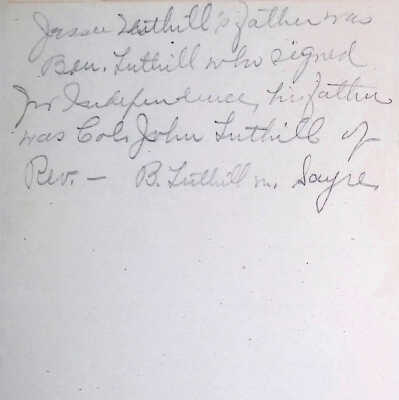 Jassee Tuthill's father was
Ben. Tuthill who signed
for Independence, his father
was Col. John Tuthill of
Rev. — B. Tuthill m. Sayre